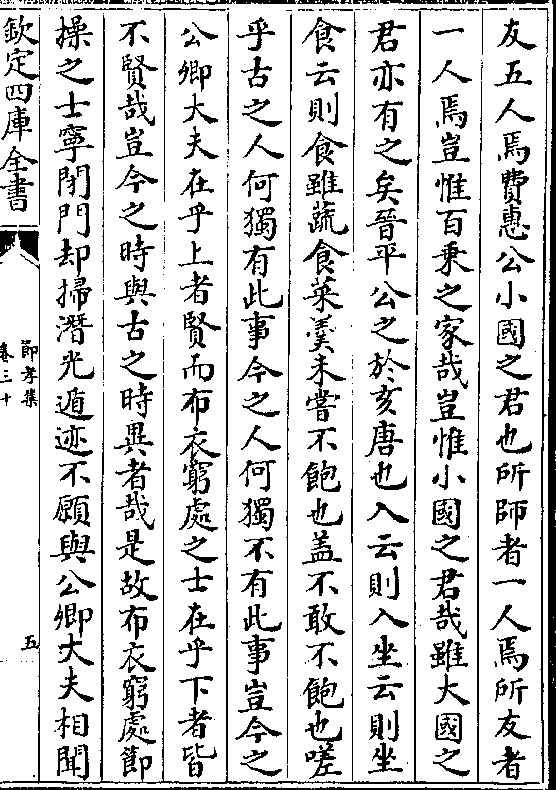 友五人焉費惠公小國之君也所師者一人焉所友者
一人焉豈惟百乘之家哉豈惟小國之君哉雖大國之
君亦有之矣晉平公之於亥唐也入云則入坐云則坐
食云則食雖蔬食菜羮未嘗不飽也盖不敢不飽也嗟
乎古之人何獨有此事今之人何獨不有此事豈今之
公卿大夫在乎上者賢而布衣窮處之士在乎下者皆
不賢哉豈今之時與古之時異者哉是故布衣窮處節
操之士寧閉門却掃潛光遁迹不願與公卿大夫相聞
欽定四庫全書
節孝集
卷三十
五